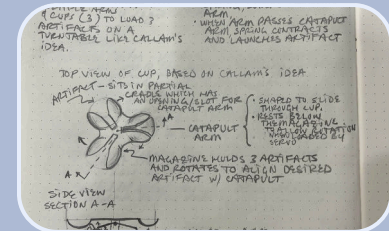 4 CUPS (3) TO LOAD ?
ARTIFACTS ON A
TURNTABLE LIKE CALLAM'S
IDEA.
ARM
• WHEN ARM PASSES CATAPULT
ARM, SPRING CONTRACTS
AND LAUNCHES ARTIFACT
TOP VIEW OF CUP, BASED ON CALLAM'S IDEA
ARTIFACT - SITS IN PARTIAL
CRADLE WHICH HAS
AN OPENING/SLOT FOR
CATAPULT ARM
A
CATAPULT
ARM
• SHAPED TO SLIDE
THROUGH CUP.
• RESTS BELOW
THE MAGAZINE
TO ALLOW ROTATION
WHEN LOADED BY
SERVO
A
MAGAZINE HOLDS 3 ARTIFACTS
AND ROTATES TO ALIGN DESIRED
ARTIFACT W/ CATAPULT
SIDE VIEW
SECTION A-A